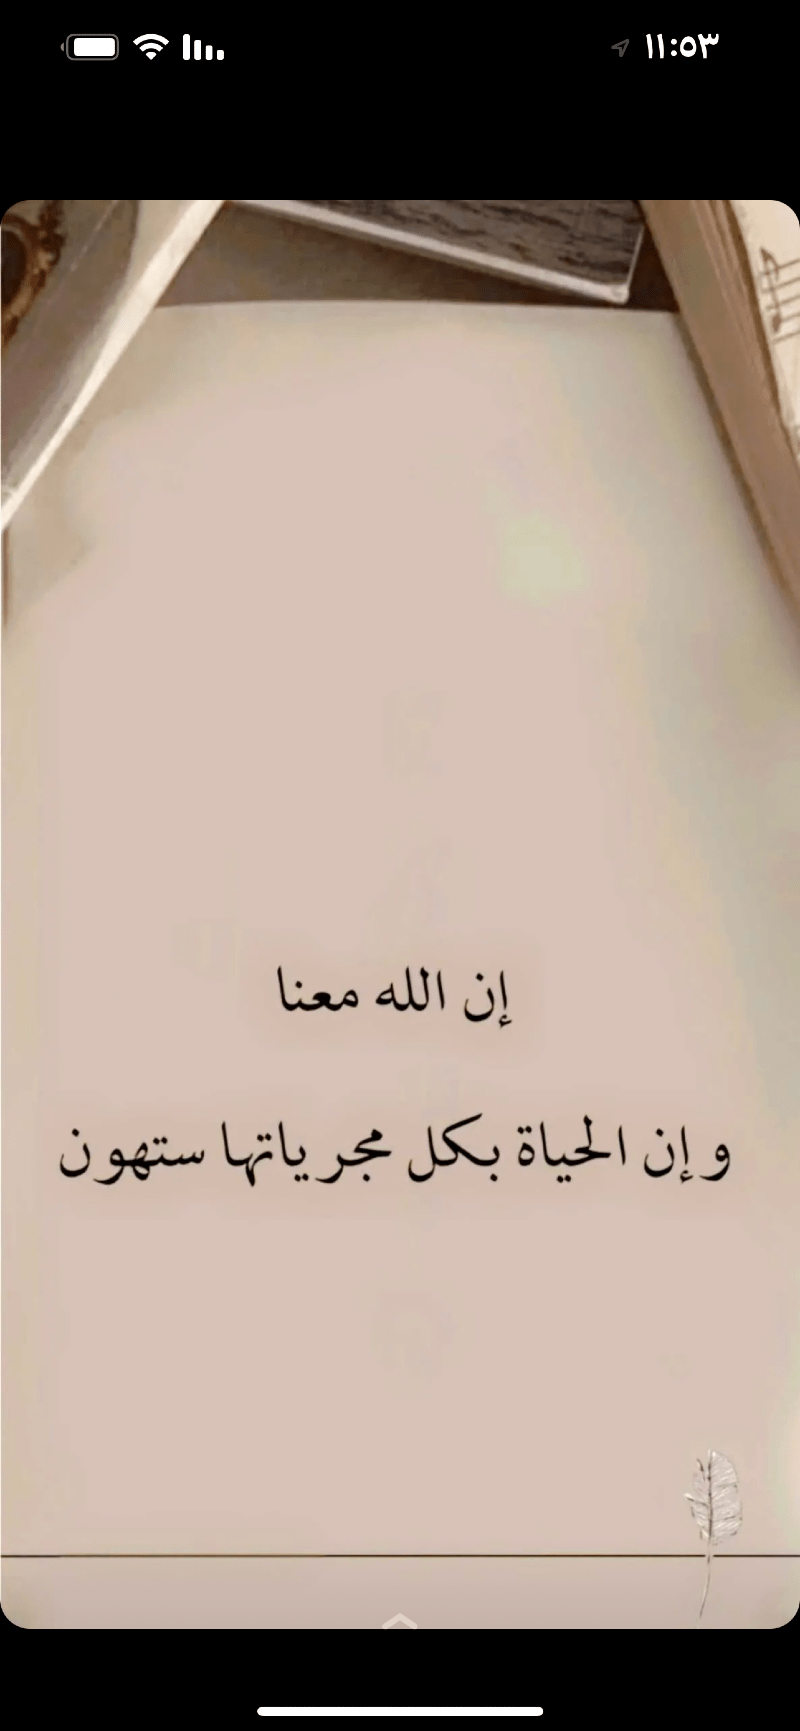 ١١:٥٣
إن الله معنا
و إن الحياة بكل مجرياتها ستهون